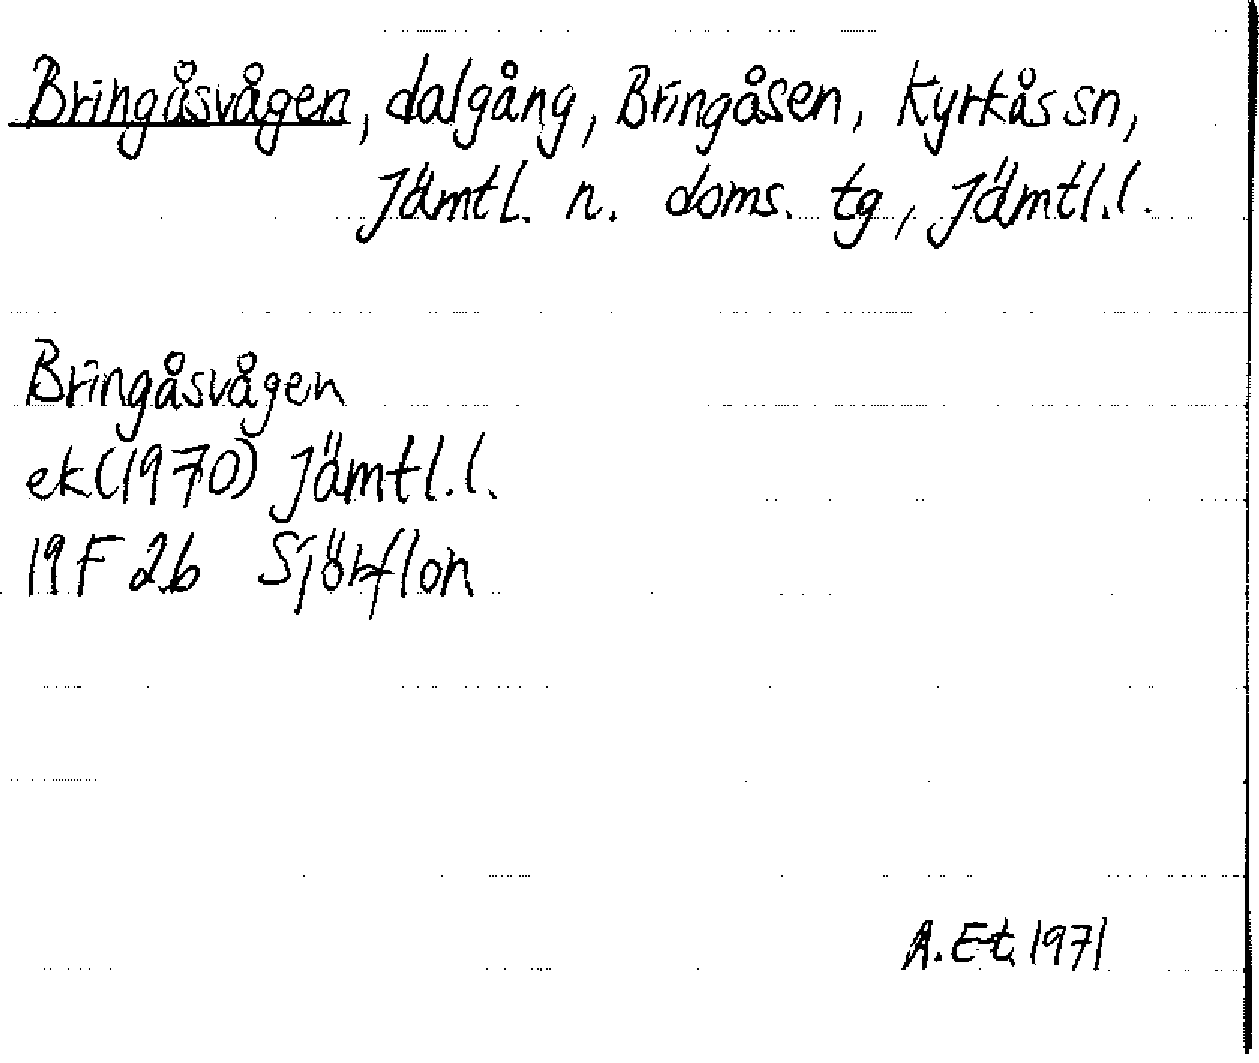 Bringåsvågen, dalgång, Bringåsen, Kyrkås sn,
Jämtl. n. doms. tg, Jämtl.l.
Bringåsvågen
ek(1970) Jämtl.l.
19F 2b Sjörflon
A. Et. 1971